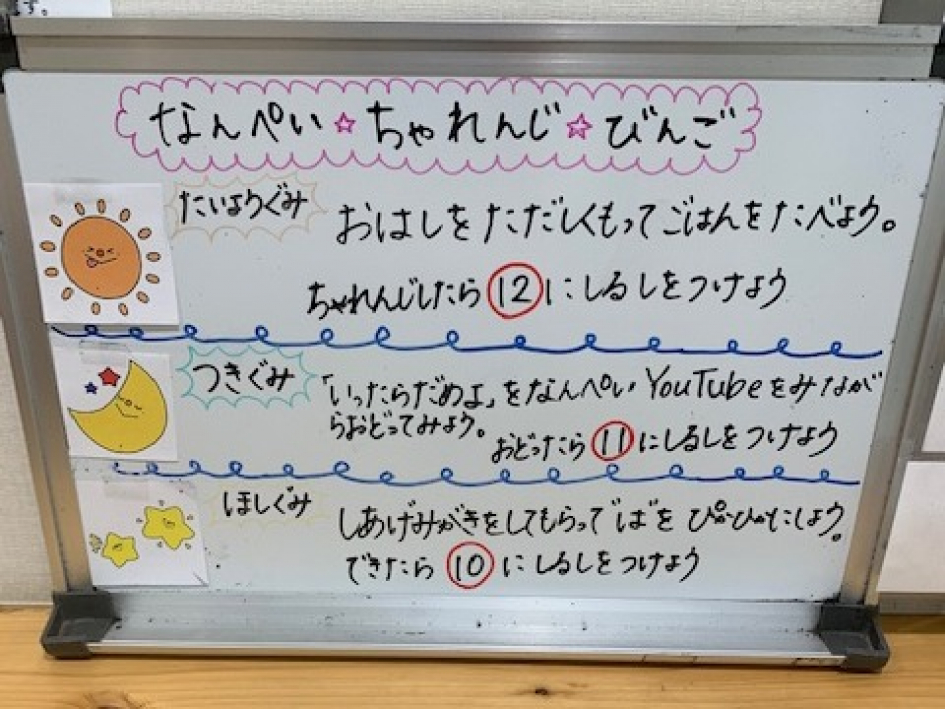 す。
なんぺい☆ちゃれんじ☆びんご
たいようぐみ
おはしをただしくもってごはんをたべよう。
ちゃれんじしたら⑫にしるしをつけよう
つきぐみ
「いったらだめよ」をなんぺいYouTubeをみなが
らおどってみよう。
おどったら⑪にしるしをつけよう
ほしぐみ
しあげみがきをしてもらってはをぴかぴかにしよう。
できたら⑩にしるしをつけよう